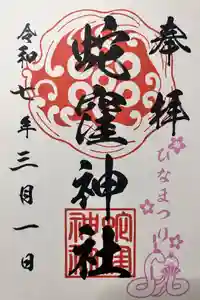 奉拝
ひなまつり
蛇窪神社
令和七年三月一日